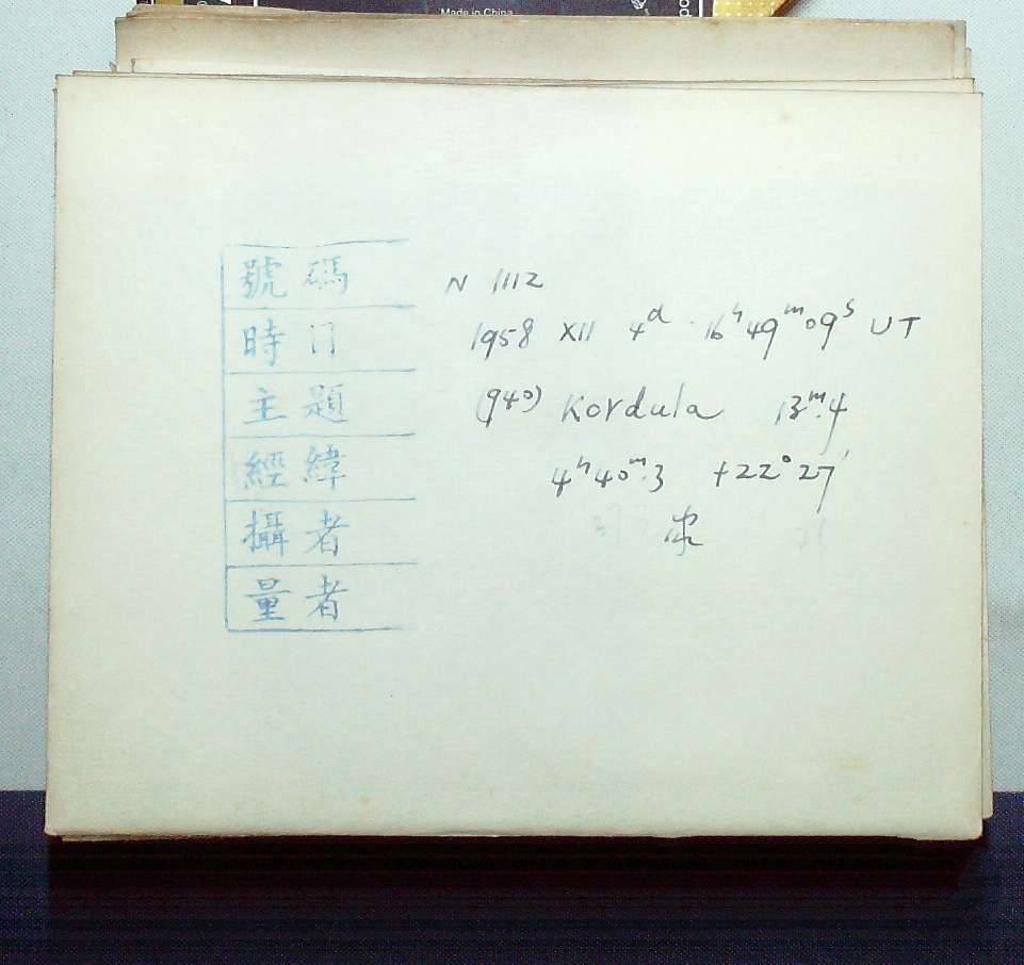 Made in China
號碼 N 1112
時 1958 XII 4ᵈ 16ʰ49ᵐ09ˢ UT
主題 (940) Kordula 13ᵐ.4
經緯 4ʰ40ᵐ.3 +22°27′
攝者
量者